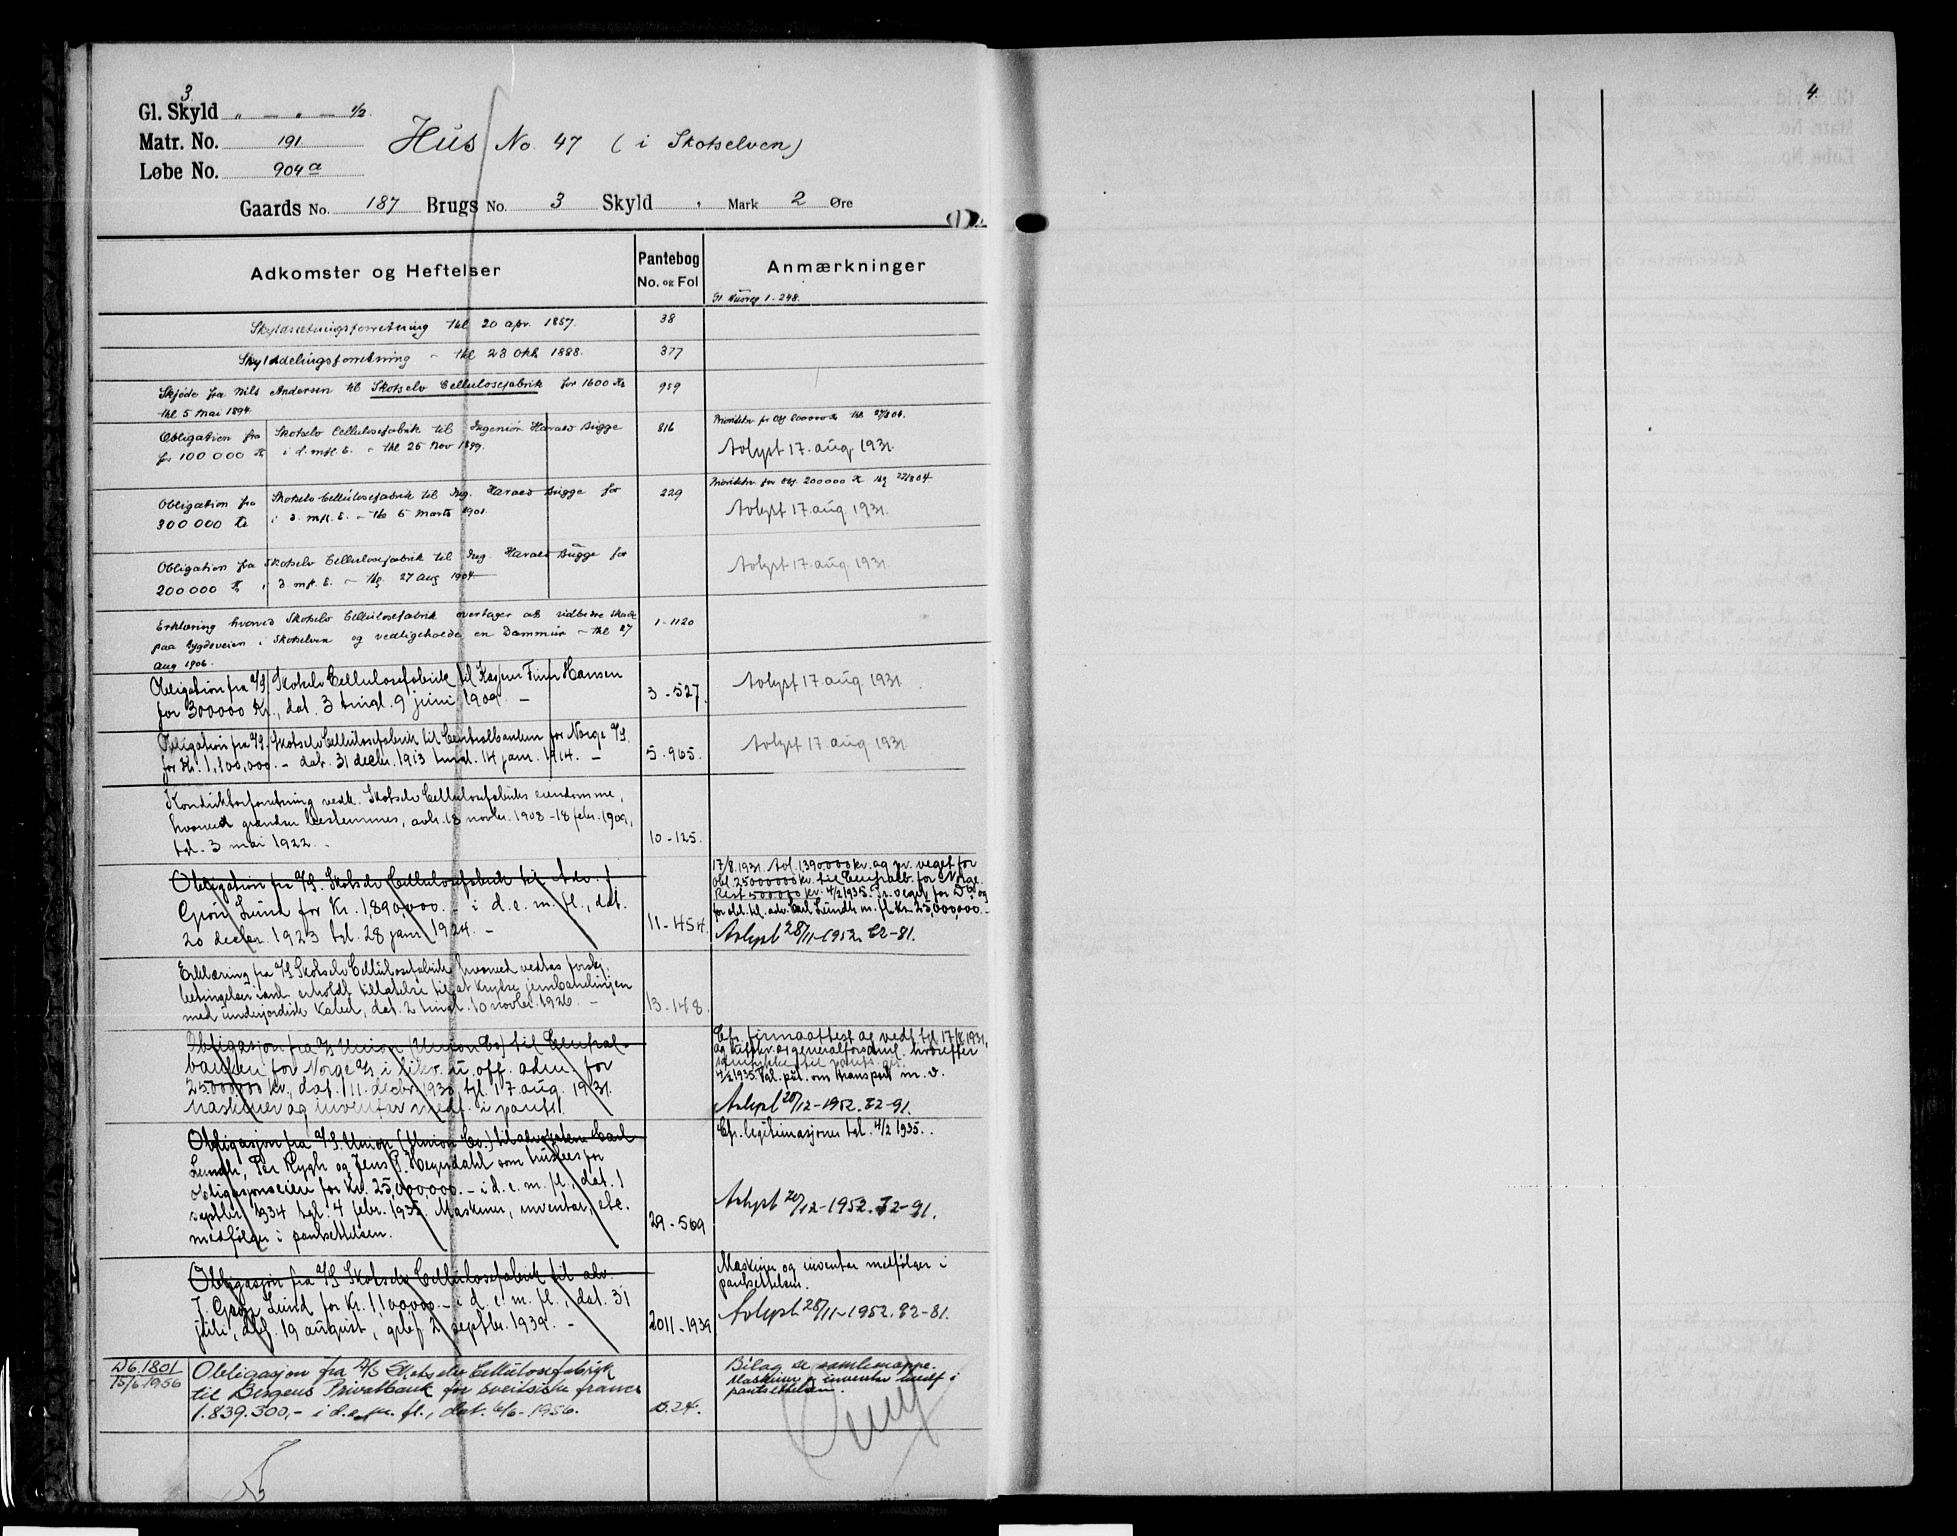 3
Gl. Skyld " — " — 1/2
Matr. No. 191
Hus No. 47 ( i Skotselven)
Løbe No. 904 a
Gaards No. 187 Brugs No. 3 Skyld , Mark 2 Øre
Adkomster og Heftelser
Pantebog
No. og Fol
Anmærkninger
1 - 248.
Skyldsætningsforretning thl 20 apr. 1857. 38
Skylddelingsforretning - thl 23 Okt 1888. 377
Skjøde fra Nils Andersen til Skotselv Cellulosefabrik for 1600 Kr 959
thl 5 Mai 1894.
Obligation fra Skotselv Cellulosefabrik til Ingeniør Harald Bugge 816
for 100 000 Kr i d. m fl. E. - thl 25 Nov 1899.
Avlyst 17. aug. 1931.
Obligation fra Skotselv Cellulosefabrik til Ing. Harald Bugge for 229
300 000 Kr i d. mfl. E. - thl 5 Marts 1901.
Prioritetsv for Obl. 200000 Kr
Avlyst 17. aug 1931.
Obligation fra Skotselv Cellulosefabrik til Ing. Harald Bugge for
200 000 Kr i d mfl. E. - thg 27 Aug 1904
Avlyst 17. aug 1931.
Erklæring hvorved Skotselv Cellulosefabrik overtager at
paa Bygdeveien i Skotselven og vedligeholde en Dammur - thl 27
Aug 1906.
1 - 1120
Obligation fra A/S Skotselv Cellulosefabrik til Kasper Finn Hansen
for 300000 Kr., dat. 3 tingl. 9 juni 1909. -
3 - 527.
Avlyst 17. aug 1931.
Obligation fra A/S. Skotselv Cellulosefabrik til Centralbanken for Norge A/S
for Kr. 1,100,000. - dat. 31 decbr. 1913 tingl. 14 jan. 1914. -
5 - 965.
Avlyst 17. aug 1931.
Konduktørforretning vedk. Skotselv Cellulosefabriks eiendomme,
hvorved grændser bestemmes, avh. 18 novbr. 1908 - 18 febr. 1909,
tgl. 3 mai 1922.
10 - 125.
Obligation fra A/S. Skotselv Cellulosefabrik til Adv. J.
Grøn Lund for Kr. 1,890,000. - i d. e. m. fl., dat.
20 decbr. 1923 tgl. 28 jan. 1924. -
11 - 454.
17/8.1931. Avl. 1390000 kr. og pr. veget for
obl. 25000000 kr. til Centralb. for Norge.
Rest 500000 kr. 4/2 1935. Pr. veget for
for obl. til adv. Carl Lundh m. fl. Kr. 25,000,000. -
Avlyst 28/11-1952. E2-81.
Erklæring fra A/S Skotselv Cellulosefabrik hvorved vedtas forskj.
betingelser erholdt tillatelse til at krydse jernbanelinjen
med underjordisk kabel, dat. 2 tingl. 10 novbr. 1926. -
13 - 148.
Obligasjon fra A/S Union (Union Co) til Central-
banken for Norge A/S i likv. u. off. adm. for
25000000 kr., dat. 11. decbr. 1930 tgl. 17. aug. 1931.
Maskiner og inventar medf. i pantet.
Cfr. firmaattest og vedt. tgl. 17/8 1931,
4/2 1935. Tgl. påt. om transport m. v.
Avlyst 20/12-1952. E2-91.
Obligasjon fra A/S. Union (Union Co.) til advokatene Carl
Lundh, Per Rygh og Jens P. Heyerdahl som trustees for
obligasjonseiere for Kr. 25,000,000. - i d. e. m. fl., dat. 1
septbr. 1934 tgl. 4 febr. 1935. Maskiner, inventar, etc.
medfølger i pantsettelsen.
29 - 569
Cfr. legitimasjoner tgl. 4/2 1935.
Avlyst 20/12-1952. E2-91.
Obligasjon fra A/S Skotselv Cellulosefabrik til adv.
J. Grøn Lund for Kr. 1100000. - i d. e. m. fl., dat. 31
juli, dbf. 19 august, grbf. 2 septbr. 1939. -
2011 - 1939
Maskiner og inventar medfølger i
pantsettelsen.
Avlyst 28/11-1952. E2-81.
D6. 1801
15/6 1956
Obligasjon fra A/S Skotselv Cellulosefabrik
til Bergens Privatbank for sveitsiske francs
1.839.300,- i d. e. m. fl., dat. 6/6-1956.
B.24.
Bilag se samlemappe.
Maskiner og inventar medf i
pantsettelsen.
4.